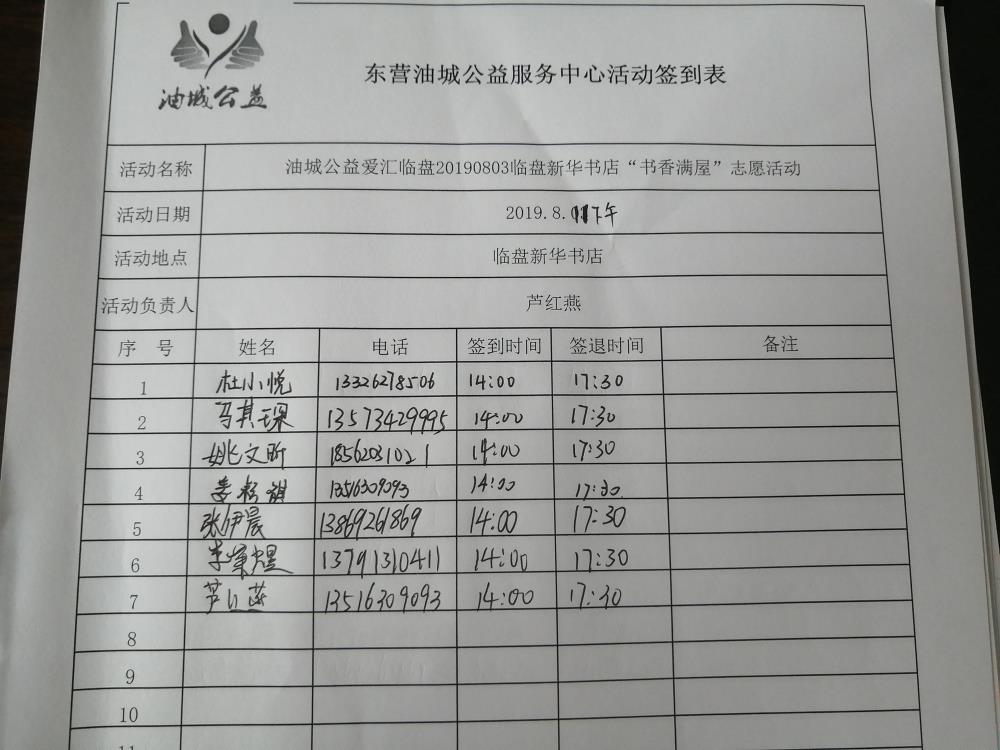 油城公益
东营油城公益服务中心活动签到表
活动名称 油城公益爱汇临盘20190803临盘新华书店“书香满屋”志愿活动
活动日期 2019.8.11下午
活动地点 临盘新华书店
活动负责人 芦红燕
序 号 姓名 电话 签到时间 签退时间 备注
1 杜小悦 13326278506 14:00 17:30
2 马其琛 13573429995 14:00 17:30
3 姚文昕 18562031021 14:00 17:30
4 13516309093 14:00 17:30
5 张伊晨 13869261869 14:00 17:30
6 13791310411 14:00 17:30
7 芦红燕 13516309093 14:00 17:30
8
9
10